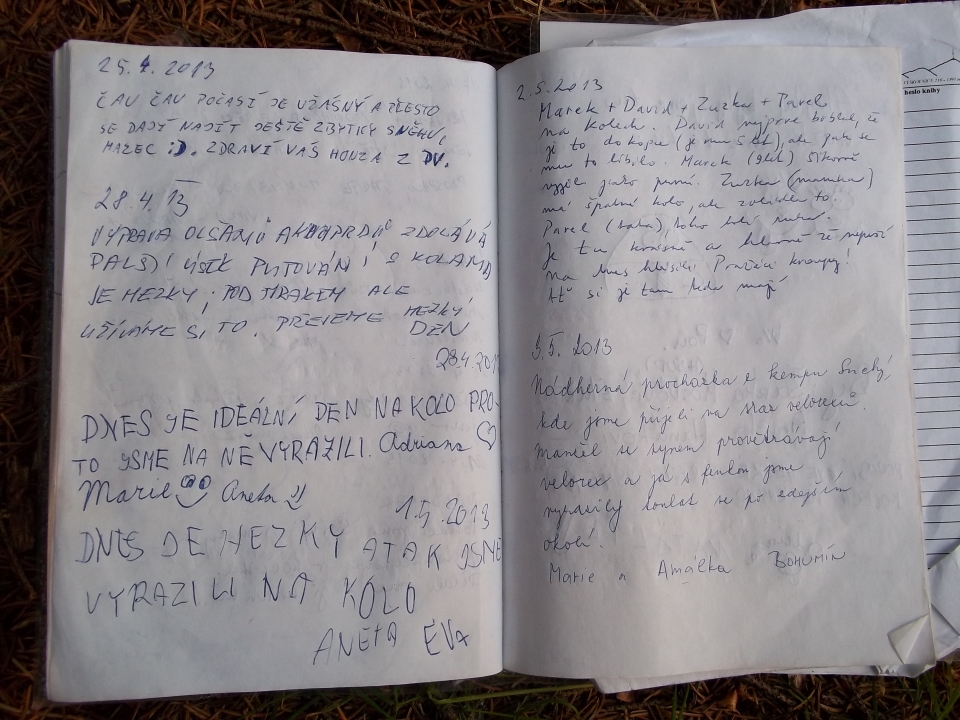 25.4.2013
ČAU ČAU POČASÍ JE UŽASNÝ A PŘESTO
SE DAJÍ NAJÍT JEŠTĚ ZBYTKY SNĚHU,
MAZEC :D. ZDRAVÍ VÁŠ HONZA Z DV.
28.4.13
VÝPRAVA OLŠANŮ A ZDOLÁVÁ
DALŠÍ ÚSEK PUTOVÁNÍ S KOLAMA
JE HEZKY, POD MRAKEM ALE
UŽÍVÁME SI TO. PŘEJEME HEZKÝ
DEN
28.4.201
DNES JE IDEÁLNÍ DEN NA KOLO PRO-
TO JSME NA NĚ VYRAZILI. Adriana ♡
Marie Aneta
1.5.2013
DNES JE HEZKY A TAK JSME
VYRAZILI NA KOLO
ANETA EVA
2.5.2013
Marek + David + Zuzka + Pavel
na kolech. David nejprve brblal, že
je to do kopce (je mu 5 let), ale pak se
mu to líbilo. Marek (9let) šikovně
vyjel jako první. Zuzka (mamka)
má špatné kolo, ale zvládla to.
Pavel (táta), toho bolí ruka.
Je tu krásně a hlavně že neprší
na nás hlásili Pražáci kroupy!
Ať si je tam mají
3.5. 2013
Nádherná procházka z kempu Suchý,
kde jsme přijeli na sraz velorexů.
Manžel se synem provětrávají
velorex a já s fenkou jsme
vyrazily toulat se po zdejším
okolí.
Marie a Amálka BOHUMÍN
heslo knihy